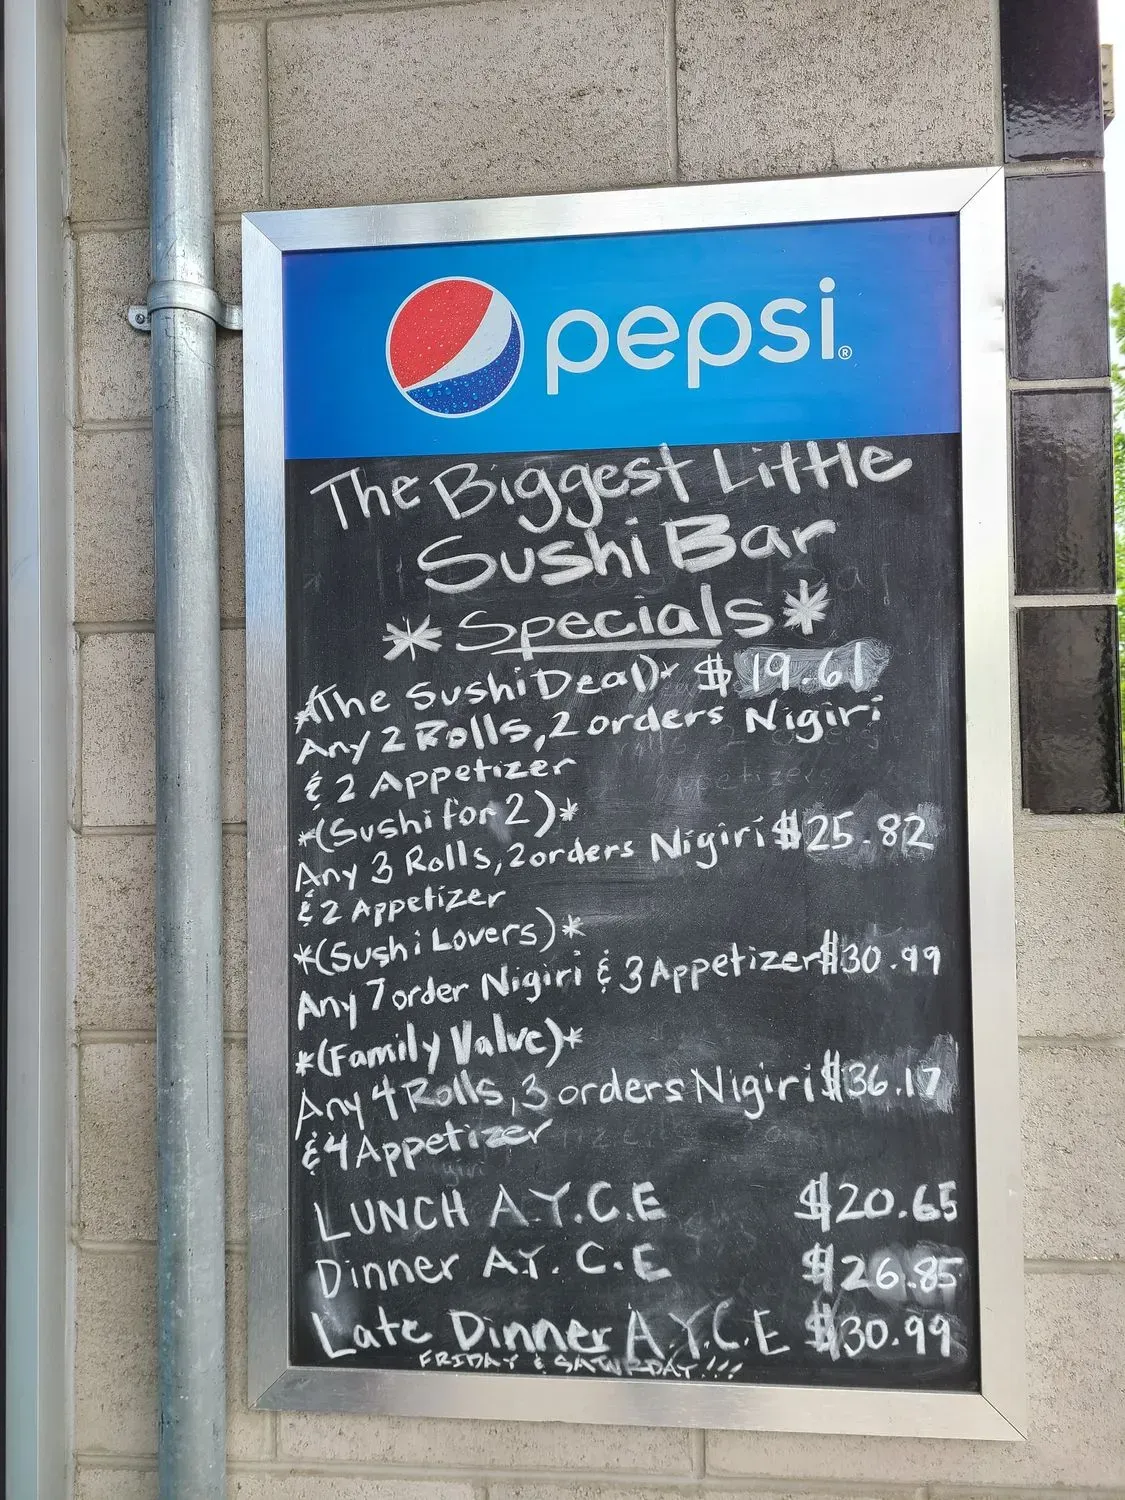 pepsi®
The Biggest Little
Sushi Bar
* Specials *
*(The Sushi Deal)* $ 19.61
Any 2 Rolls, 2 orders Nigiri
& 2 Appetizer
*(Sushi for 2)*
Any 3 Rolls, 2 orders Nigiri $25.82
& 2 Appetizer
*(Sushi Lovers)*
Any 7 order Nigiri & 3 Appetizer $30.99
*(Family Value)*
Any 4 Rolls, 3 orders Nigiri $36.17
& 4 Appetizer
LUNCH A.Y.C.E $20.65
Dinner A.Y.C.E $26.85
Late Dinner A.Y.C.E $30.99
FRIDAY & SATURDAY!!!